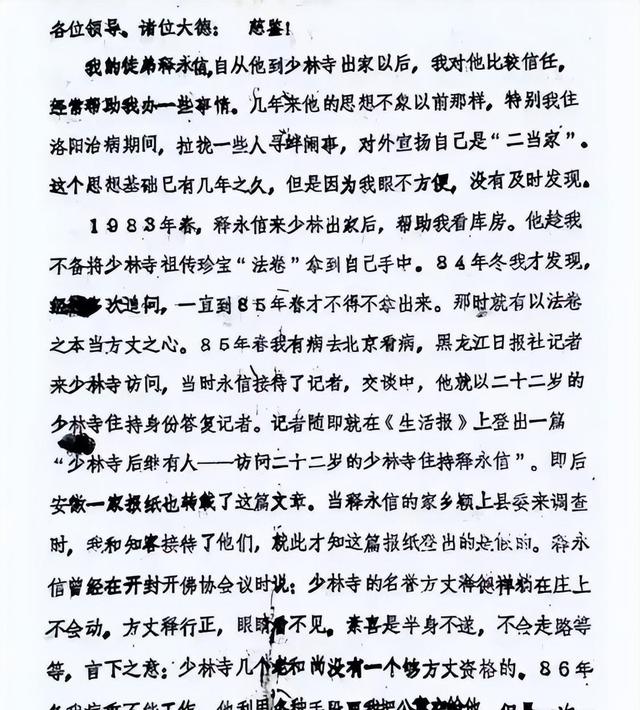 各位领导。诸位大德：  慈鉴！
我的徒弟释永信，自从他到少林寺出家以后，我对他比较信任，
经常帮助我办一些事情。几年来他的思想不象以前那样，特别我住
洛阳治病期间，拉拢一些人寻衅闹事，对外宣扬自己是“二当家”。
这个思想基础已有几年之久，但是因为我眼不方便，没有及时发现。
1983年春，释永信来少林出家后，帮助我看库房。他趁我
不备将少林寺祖传珍宝“法卷”拿到自己手中。84年冬我才发现，
经多次追问，一直到85年春才不得不拿出来。那时就有以法卷
之本当方丈之心。85年春我有病去北京看病，黑龙江日报社记者
来少林寺访问，当时永信接待了记者，交谈中，他就以二十二岁的
少林寺住持身份答复记者。记者随即就在《生活报》上登出一篇
“少林寺后继有人——访问二十二岁的少林寺住持释永信”。即后
安徽一家报纸也转载了这篇文章。当释永信的家乡颍上县委来调查
时，我和知客接待了他们，就此才知这篇报纸登出的是假的。释永
信曾经在开封开佛协会议时说：少林寺的名誉方丈释德禅躺在庄上
不会动。方丈释行正，眼睛看不见。素喜是半身不遂，不会走路等
等，言下之意：少林寺几个老和尚没有一个够方丈资格的。86年